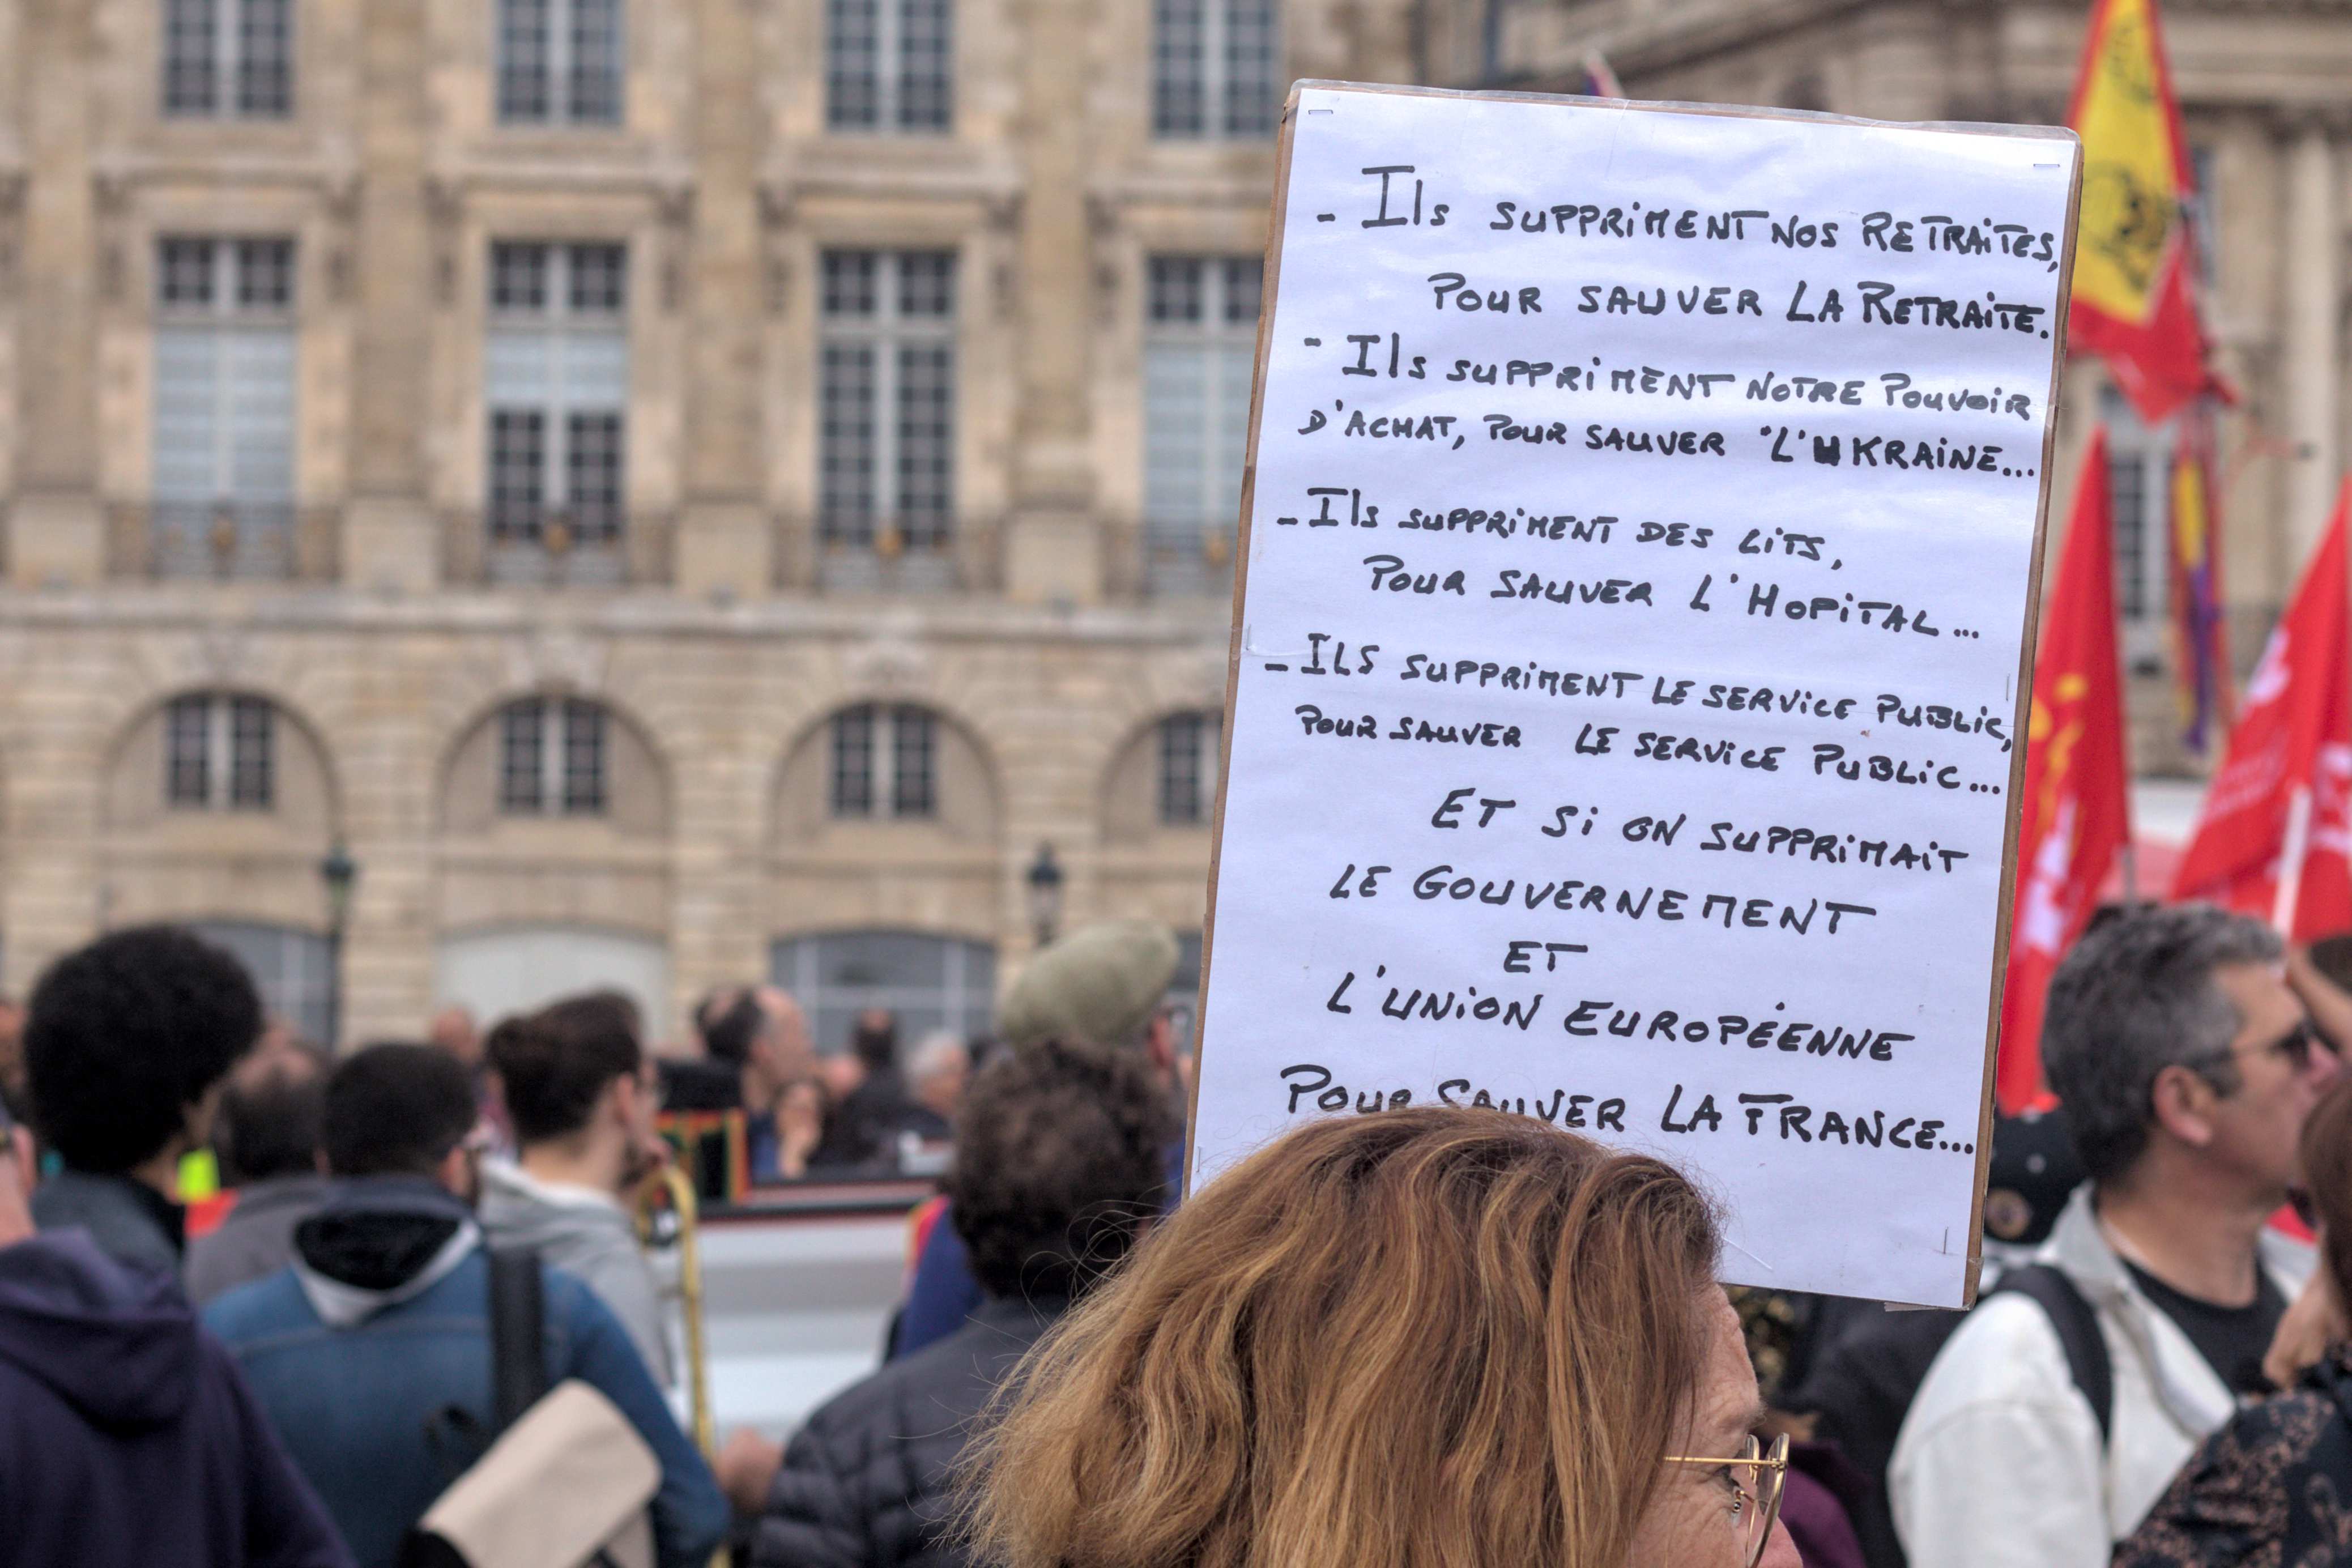 - Ils SUPPRIMENT NOS RETRAITES,
POUR SAUVER LA RETRAITE.
- Ils SUPPRIMENT NOTRE POUVOIR
D'ACHAT, POUR SAUVER "L'UKRAINE...
- Ils SUPPRIMENT DES LITS,
POUR SAUVER L'HOPITAL...
- ILS SUPPRIMENT LE SERVICE PUBLIC,
POUR SAUVER LE SERVICE PUBLIC...
ET SI ON SUPPRIMAIT
LE GOUVERNEMENT
ET
L'UNION EUROPÉENNE
POUR SAUVER LA FRANCE...